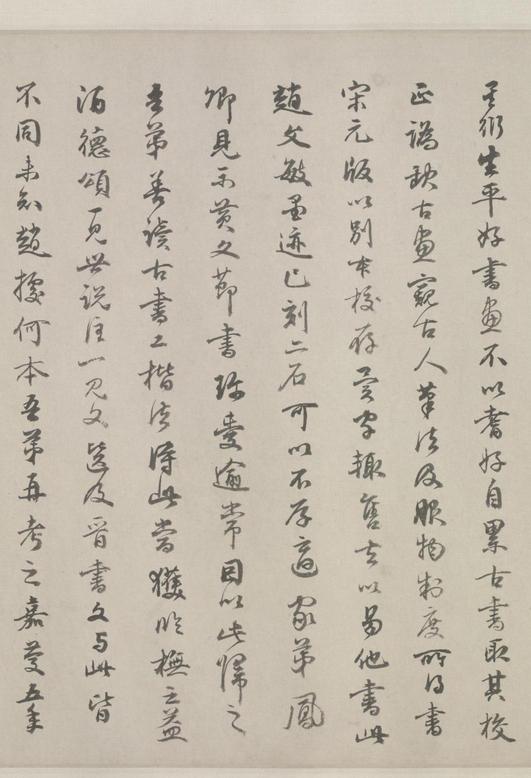 星衍生平好書畫不以耆好自累古書取其校
正譌缺古畫窺古人筆法及服物制度所得書
宋元版以別本校存異字輒售去以易他書此
趙文敏墨迹已刻二石可以不存適家弟鳳
卿見示黃文節書珎愛逾常因以此歸之
吾弟善讀古書工楷法得此當獲臨橅之益
酒德頌一見世說注一見文選及晉書文与此皆
不同未知趙據何本吾弟再考之嘉慶五年